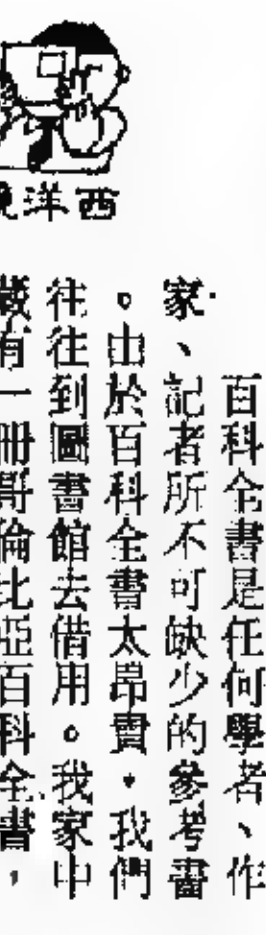 西洋鏡
百科全書是任何學者、作
家、記者所不可缺少的參考書
。由於百科全書太昂貴，我們
往往到圖書館去借用。我家中
藏有一冊哥倫比亞百科全書，